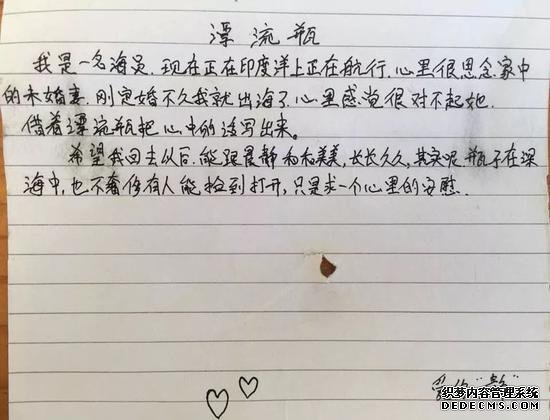 漂流瓶
我是一名海员.现在正在印度洋上正在航行.心里很思念家中
的未婚妻.刚定婚不久我就出海了.心里感觉很对不起她.
借着漂流瓶把心中的话写出来。
希望我回去以后.能跟晨静和和美美,长长久久,其实呢瓶子在深
海中,也不奢侈有人能捡到打开,只是求一个心里的安慰.
织梦内容管理系统
DEDECMS.COM